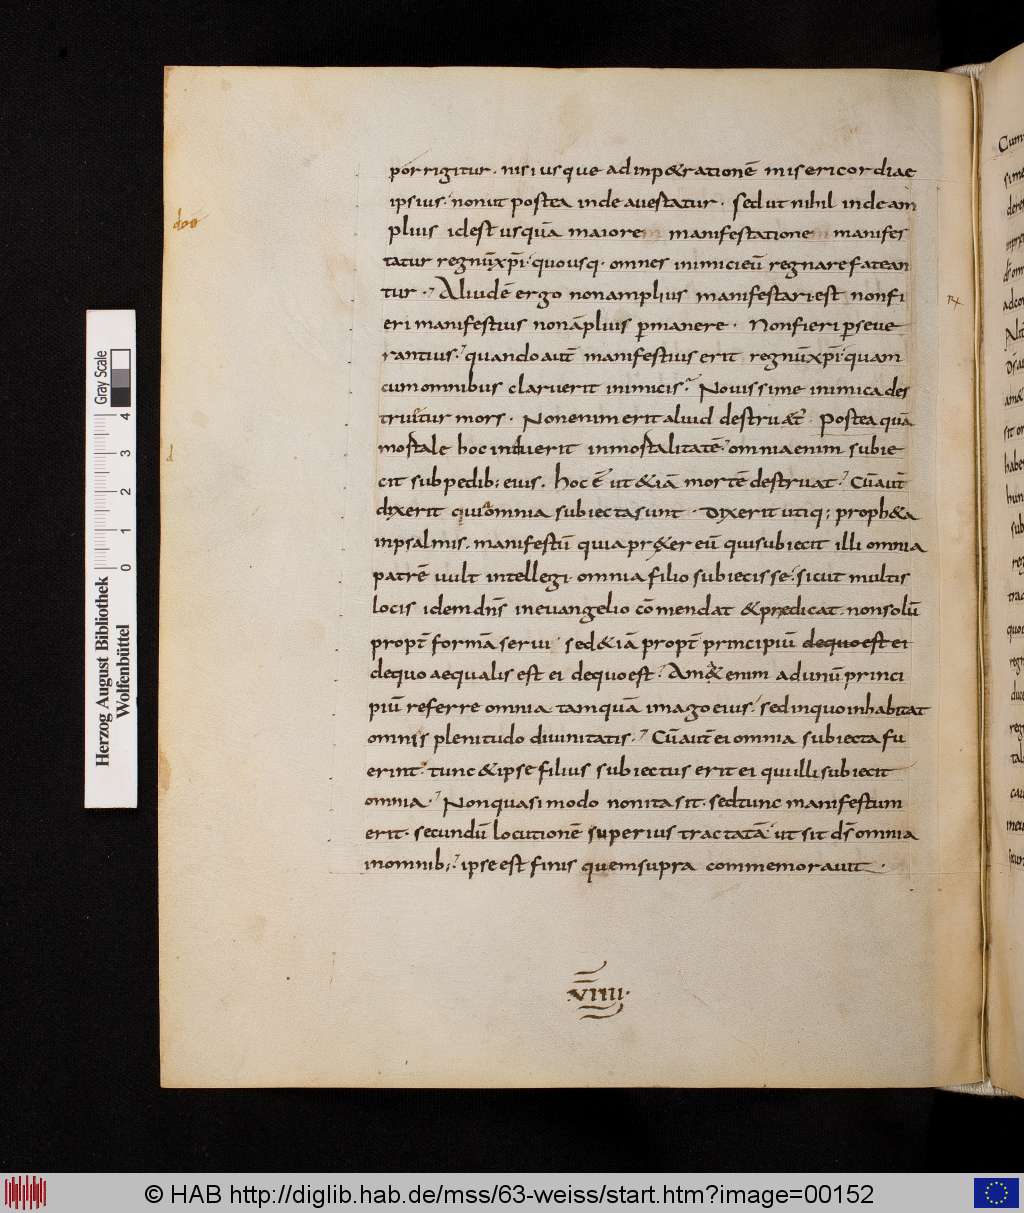 porrigitur · nisi usque ad inp&rationē misericordiae
ipsius · non ut postea inde auertatur · sed ut nihil inde am
plius id est usquā maiorem manifestationem manifes
tatur regnū xp̄i · quousq · omnes inimici eū regnare fatean
tur · Aliud ē ergo non amplius manifestari · est non fi
eri manifestius non āplius p̱manere · Non fieri p̱seue
rantius · quando aut̄ manifestius erit regnū xp̄i · quam
cum omnibus claruerit inimicis · Nouissime inimica des
truitur mors · Non enim erit aliud destruat̄ · Postea quā
mortale hoc induerit inmortalitatē · omnia enim subie
cit sub pedib; eius · hoc ē ut &iā mortē destruat · Cū aut̄
dixerit quia omnia subiecta sunt · Dixerit utiq; proph&a
in psalmis · manifestū quia pr&er eū qui subiecit illi omnia
patrē uult intellegi · omnia filio subiecisse · sicut multis
locis idem dn̄s in euangelio cōmendat & predicat · non solū
propt̄ formā serui sed &iā propt̄ principiū de quo est ei
de quo aequalis est ei de quo est · Am& enim ad unū princi
piū referre omnia tamquā imago eius · sed in quo inhabitat
omnis plenitudo diuinitatis · Cū aut̄ ei omnia subiecta fu
erint · tunc & ipse filius subiectus erit ei qui illi subiecit
omnia · Non quasi modo non ita sit · sed tunc manifestum
erit · secundū locutionē superius tractatā ut sit ds̄ omnia
in omnib; · ipse est finis quem supra commemorauit ·
·VIIII·
Herzog August Bibliothek
Wolfenbüttel
0 1 2 3 4
Gray Scale
© HAB http://diglib.hab.de/mss/63-weiss/start.htm?image=00152